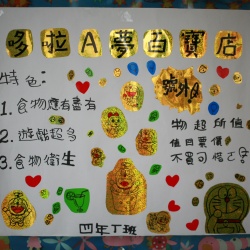 哆啦A夢百寶店
號外!
特色:
1.食物應有盡有
2.遊戲超多
3.食物衛生
物超所值
值回票價
不買可惜
四年丁班